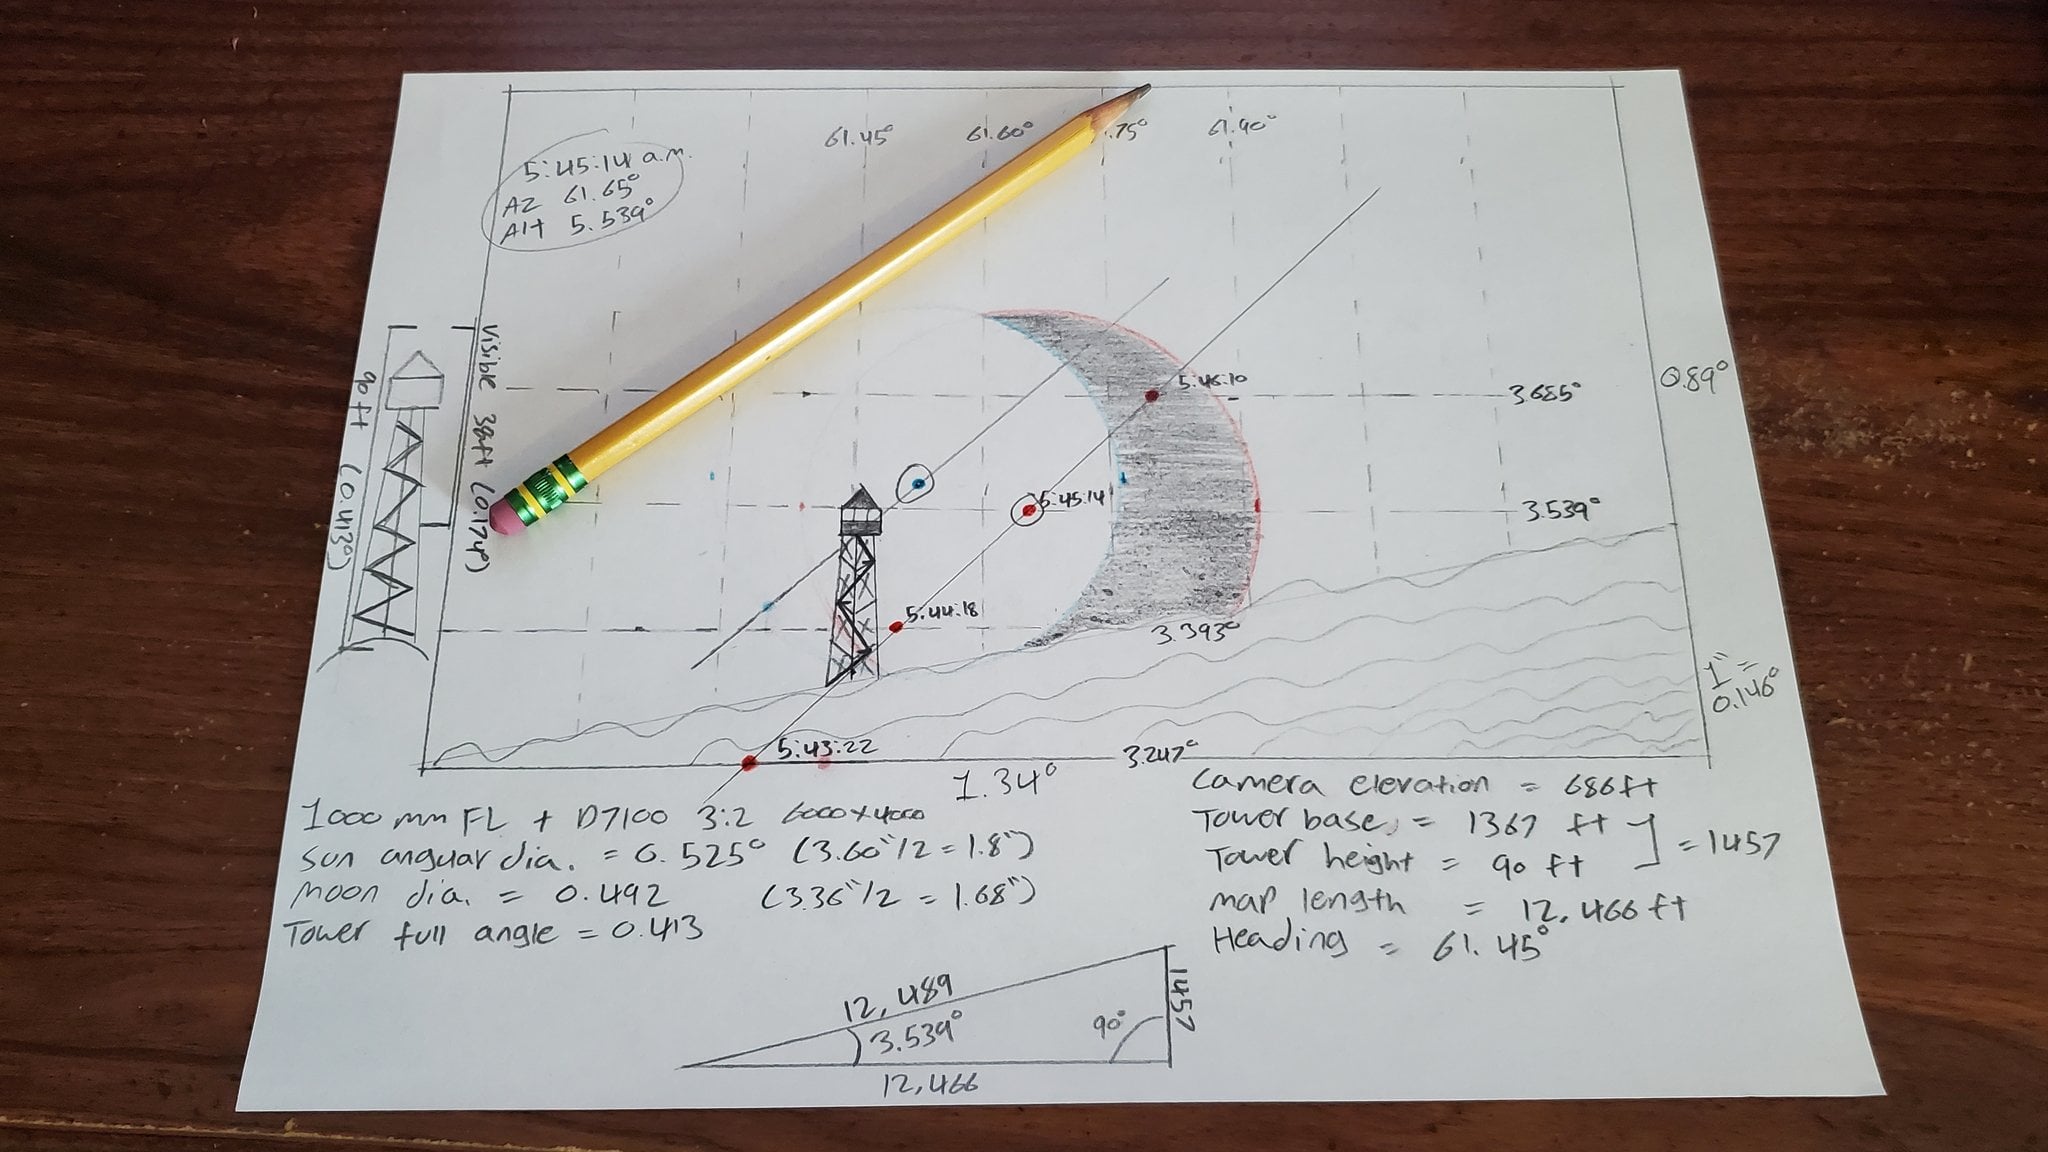 61.45° 61.60° .75° 61.90°
5:45:14 a.m.
AZ 61.65°
Alt 5.539°
90 ft (0.413°)
Visible 38ft (0.174°)
5:46:10
3.685°
0.89°
5:45:14
3.539°
5:44:18
3.393°
1" =
0.146°
5:43:22
3.247°
1.34°
1000 mm FL + D7100 3:2 6000x4000
Sun angular dia. = 0.525° (3.60"/2 = 1.8")
Moon dia. = 0.492 (3.36"/2 = 1.68")
Tower full angle = 0.413
Camera elevation = 686ft
Tower base = 1367 ft
Tower height = 90 ft ] = 1457
map length = 12,466 ft
Heading = 61.45°
12,489
3.539°
90°
1457
12,466